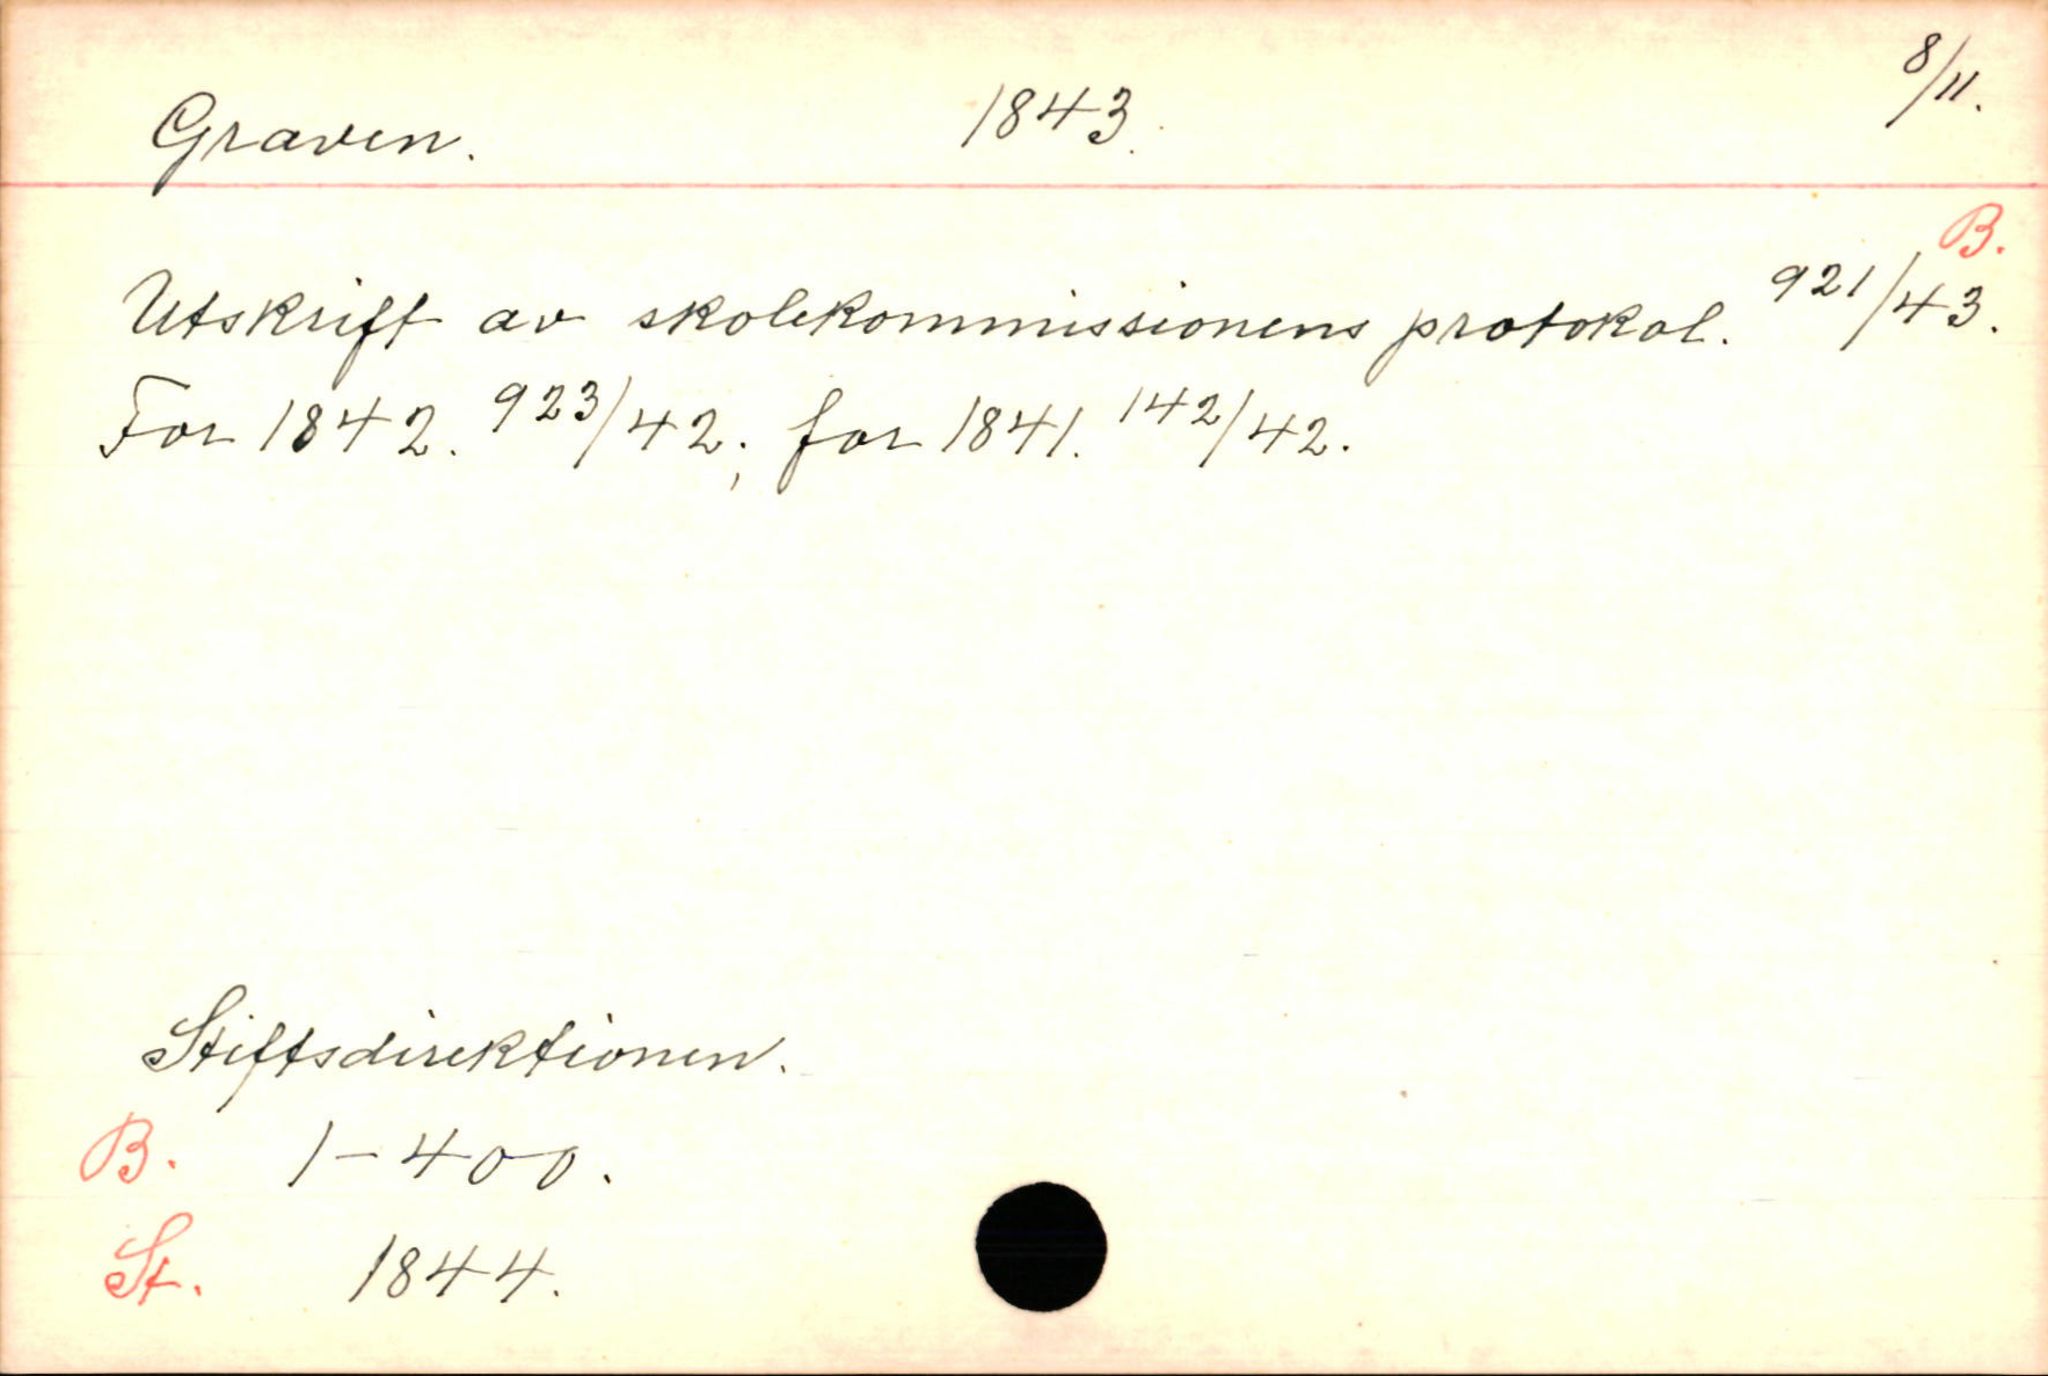 Graven. 1843. 8/11.
B.
Utskrift av skolekommissionens protokol. 921/43.
For 1842. 923/42; for 1841. 142/42.
Stiftsdirektionen.
B. 1-400.
St. 1844.